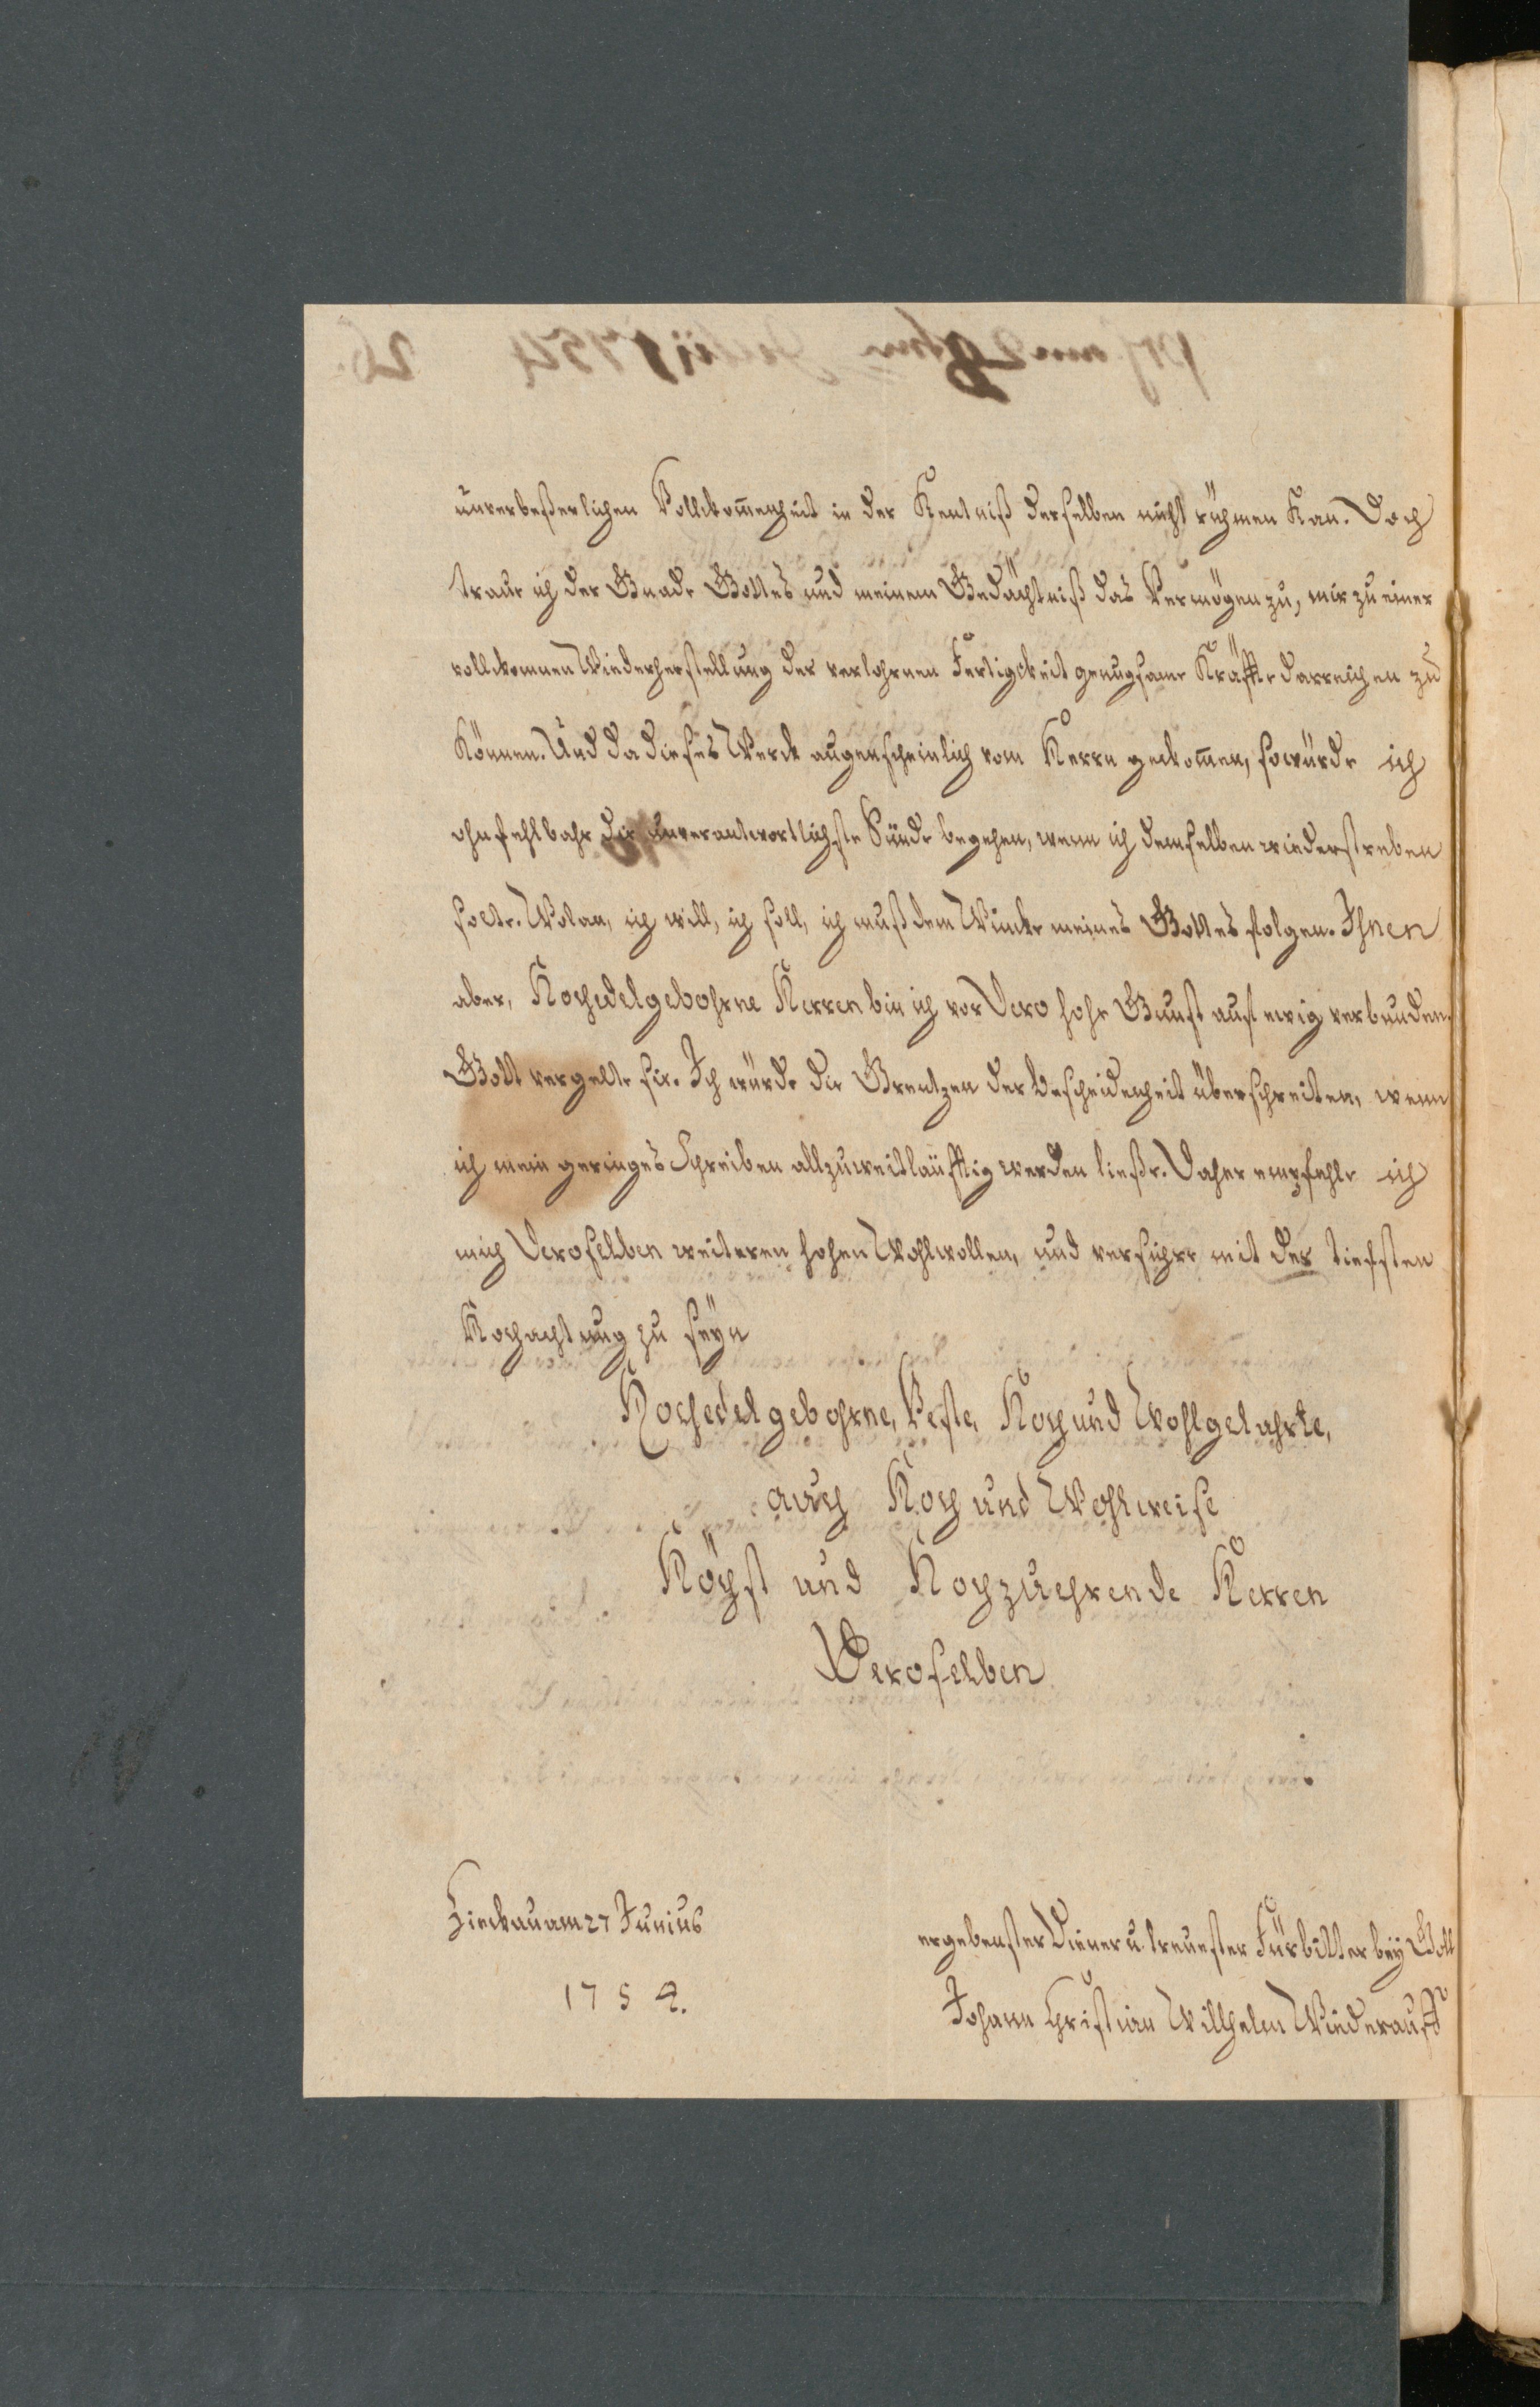 unverbeßerlichen Vollkom̅enheit in der Kentniß derselben nicht rühmen kan. Doch
traue ich der Gnade Gottes und meinem Gedächtniß das Vermögen zu, mir zu einer
vollkomnen Wiederherstellung der verlohrnen Fertigckeit genugsame Kräffte darreichen zu
können. Und da dieses Werck augenscheinlich vom Herrn gekom̅en, so würde ich
ohnfehlbahr die unverantwortlichste Sünde begehen, wenn ich demselben wiederstreben
solte. Wolan, ich will, ich soll, ich muß dem Wincke meines Gottes folgen. Ihnen
aber, Hochedelgebohrne Herren bin ich vor Dero hohe Gunst auf ewig verbunden.
Gott vergelte sie. Ich würde die Grentzen der Bescheidenheit überschreiten, wenn
ich mein geringes Schreiben allzuweitläufftig werden ließe. Daher empfehle ich
mich Deroselben weiteren hohen Wohlwollen, und versichre mit der tiefsten
Hochachtung zu seyn
Hochedelgebohrne, Veste, Hoch und Wohlgelahrte,
auch Hoch und Wohlweise
Höchst und Hochzuehrende Herren
Deroselben
Zieckau am 27 Junius
1754.
ergebenster Diener u. treuester Fürbitter bey Gott
Johann Christian Willhelm Wiederauff